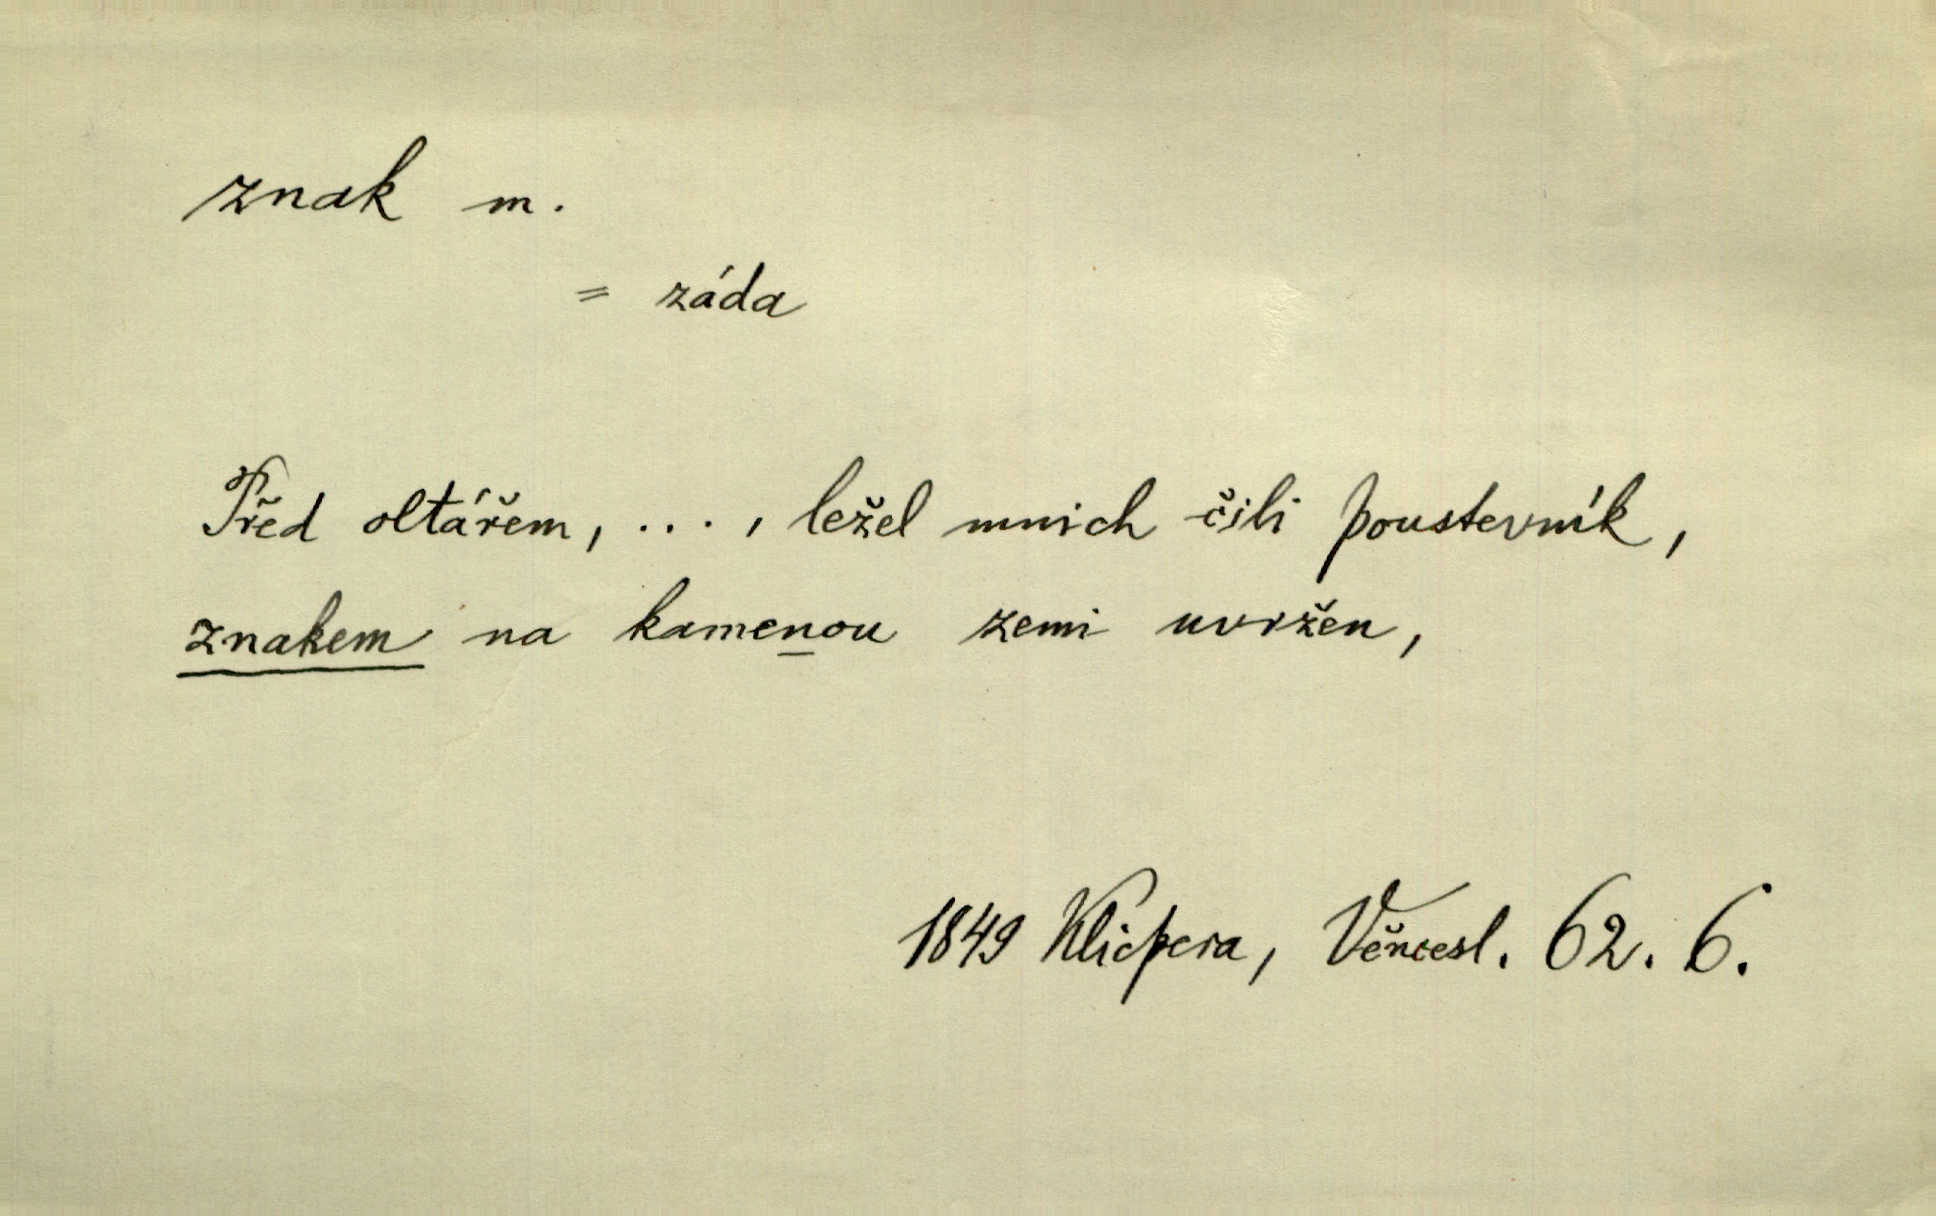 znak m.
= záda
Před oltářem, ..., ležel mnich čili poustevník,
znakem na kamenou zemi uvržen,
1849 Klicpera, Věncesl. 62. 6.